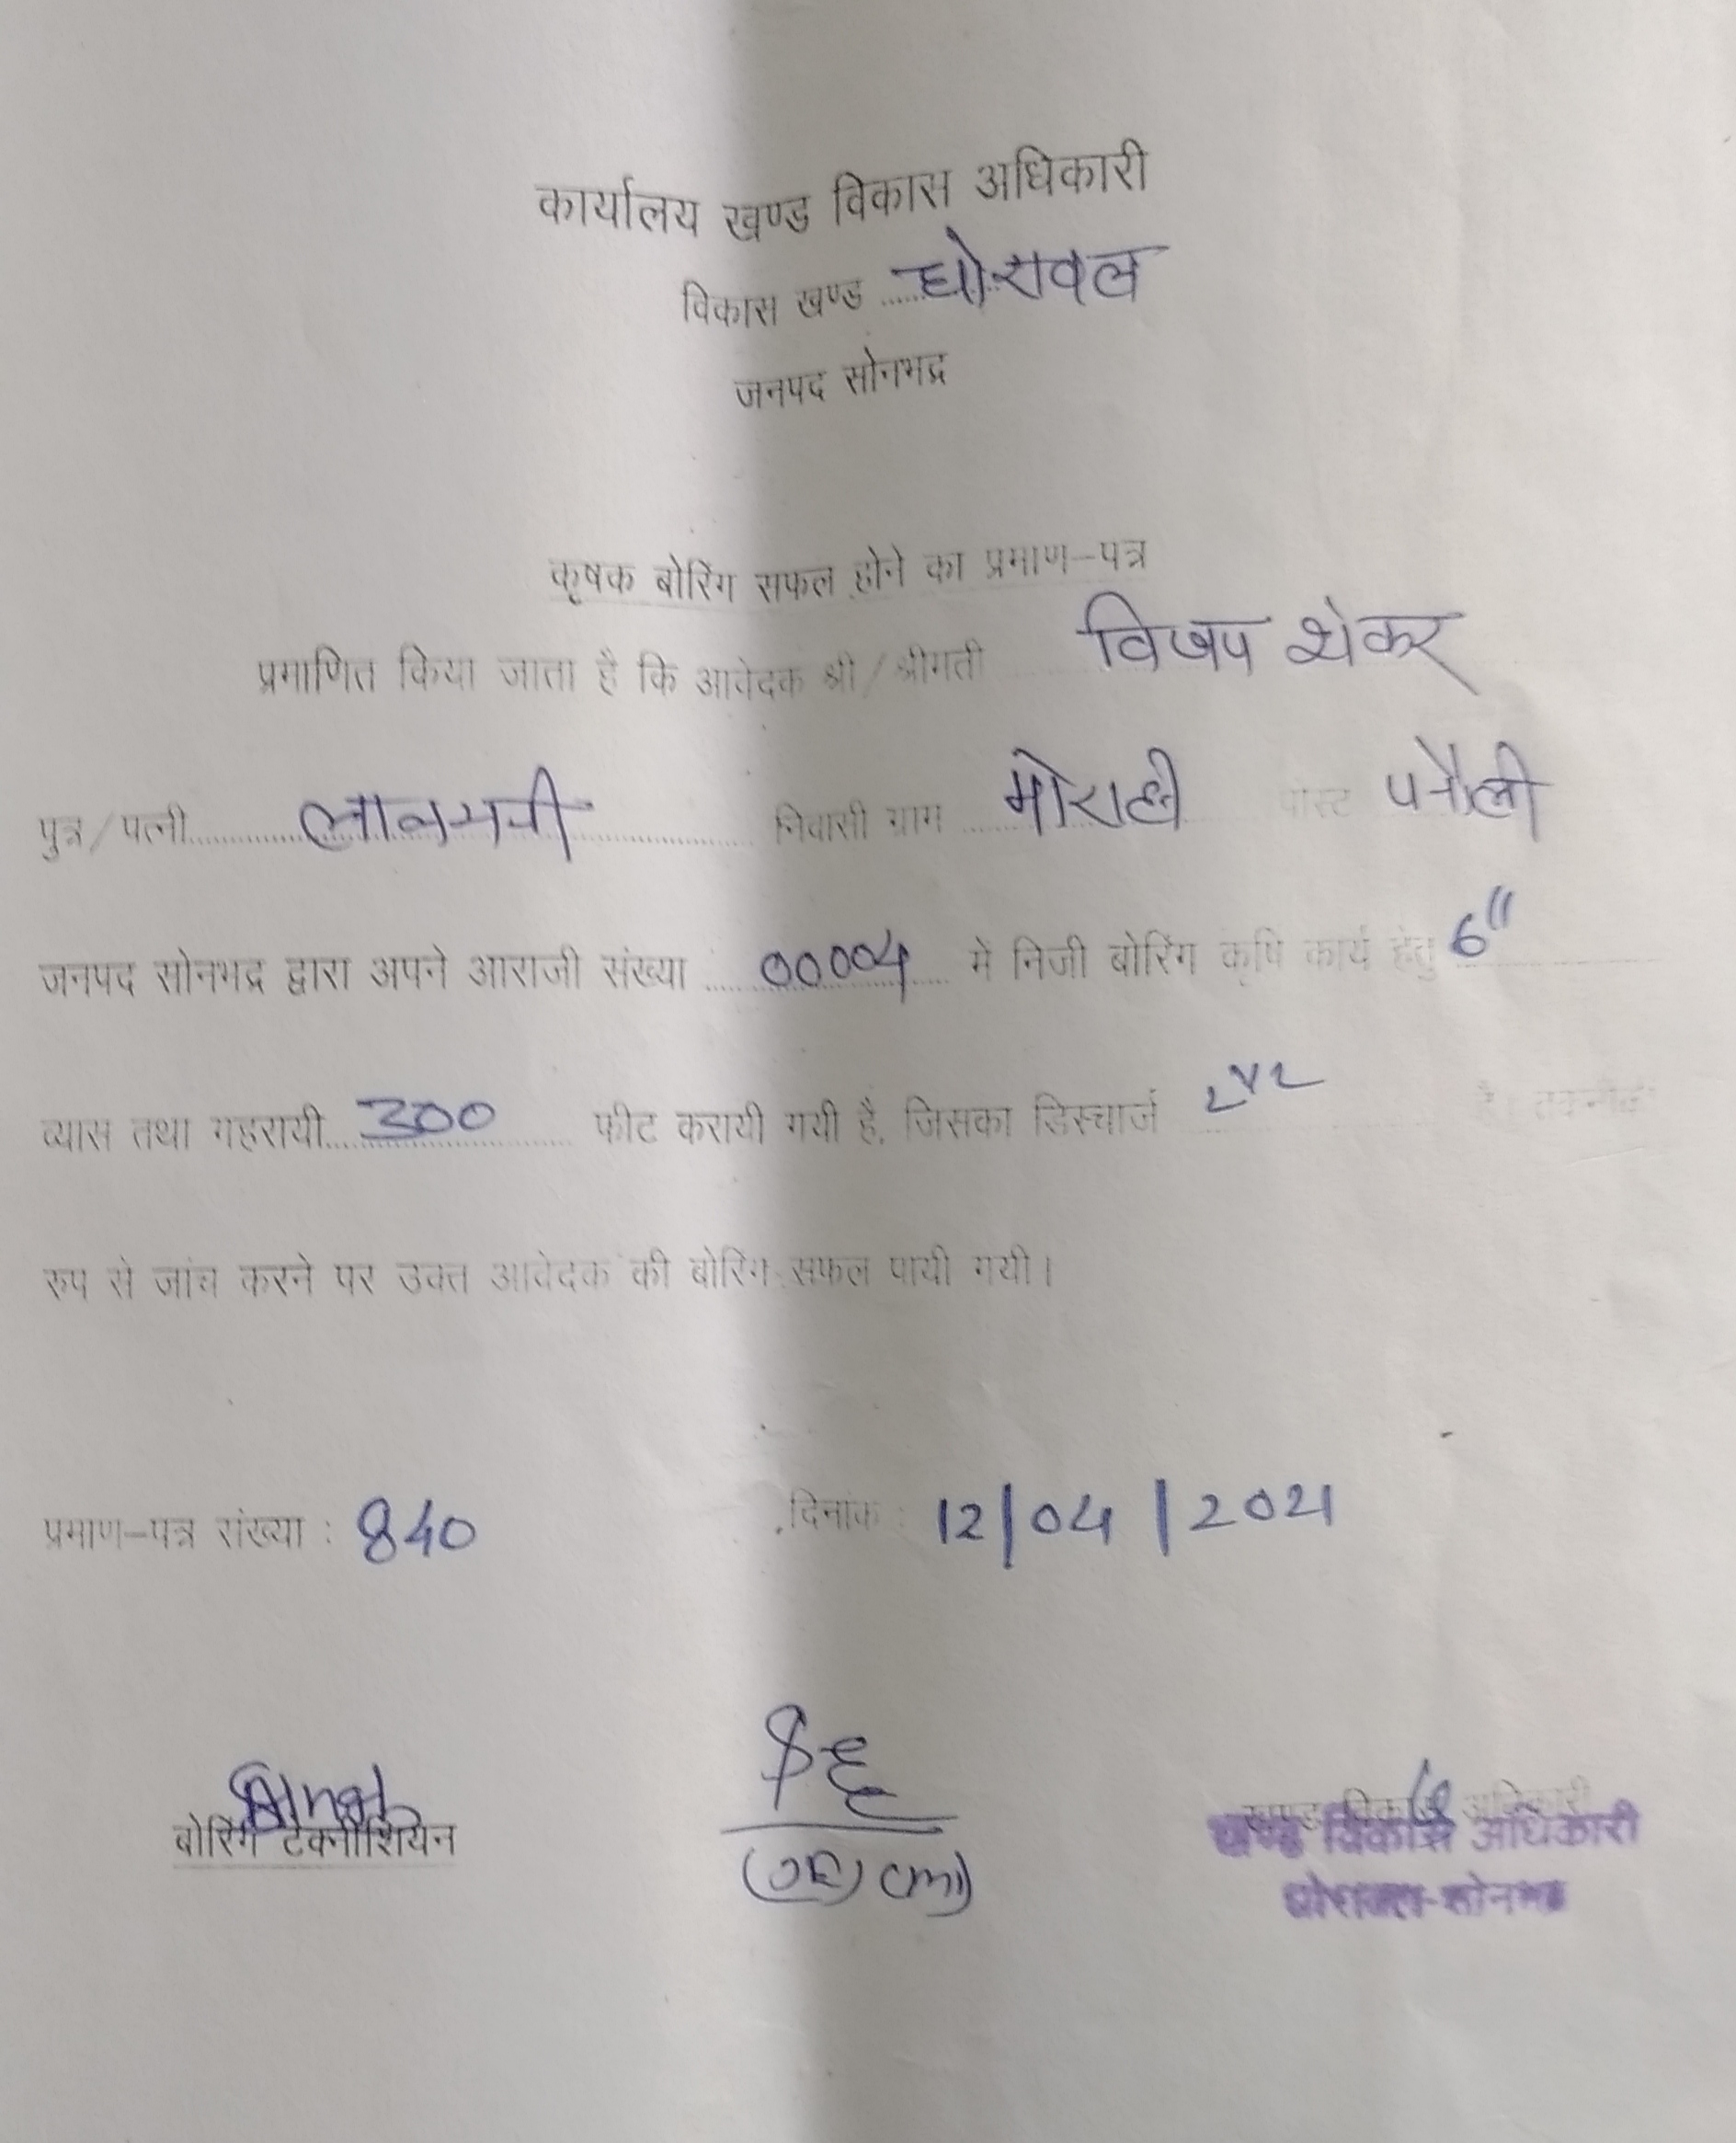 कार्यालय खण्ड विकास अधिकारी
विकास खण्ड ...... घोरावल
जनपद सोनभद्र
कृषक बोरिंग सफल होने का प्रमाण-पत्र
प्रमाणित किया जाता है कि आवेदक श्री/श्रीमती विजय शंकर
पुत्र/पत्नी लालमनी निवासी ग्राम पोस्ट
जनपद सोनभद्र द्वारा अपने आराजी संख्या 00004 में निजी बोरिंग कृषि कार्य हेतु 6"
व्यास तथा गहरायी 300 फीट करायी गयी है, जिसका डिस्चार्ज है। तकनीकी
रुप से जांच करने पर उक्त आवेदक की बोरिंग सफल पायी गयी।
प्रमाण-पत्र संख्या : 840 दिनांक : 12/04/2021
बोरिंग टेक्नीशियन
खण्ड विकास अधिकारी
खण्ड विकास अधिकारी
घोरावल-सोनभद्र